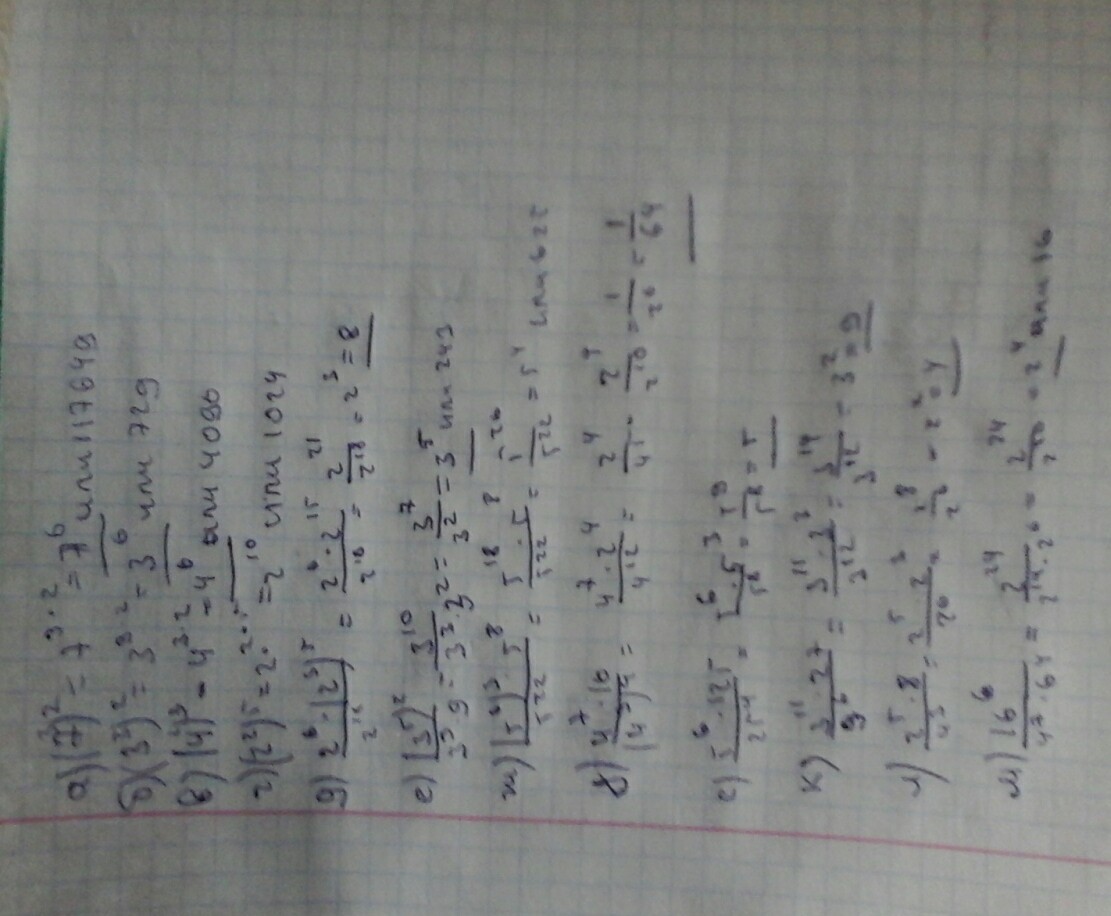 а) (7³)² = 7³·² = 7⁶ или 117649
б) (3³)² = 3³·² = 3⁶ или 729
в) (4²)³ = 4³·² = 4⁶ или 4096
г) (2²)⁵ = 2²·⁵ = 2¹⁰ или 1024
д) 2⁶·(2³)⁵/2¹⁸ = 2⁶·2¹⁵/2¹⁸ = 2²¹/2¹⁸ = 2³ = 8
е) (3⁵)²/3³·9 = 3¹⁰/3³·3² = 3⁷/3² = 3⁵ или 243
ж) 5⁸/5²² = 5¹⁸·5⁸/5²² = 5²⁶/5²² = 5⁴ или
4⁷·16/ = 4⁷·2⁴/4¹² = 2⁴/4⁵ = 2⁴/2¹⁰ = 1/2⁶ = 1/64
5⁶·125/25⁴ = 5⁶·5³/5⁸ = 5⁹/5⁸ = 5
к) 3¹¹·27/9⁶ = 3¹¹·3³/3¹² = 3¹⁴/3¹² = 3² = 9
л) 2⁵·8/4³ = 2⁵·2³/2⁶ = 2⁸/2⁶ = 2² = 4
м) 16⁶/4⁷·64 = 2²⁴/2¹⁴·2⁶ = 2²⁴/2²⁰ = 2⁴ или 16